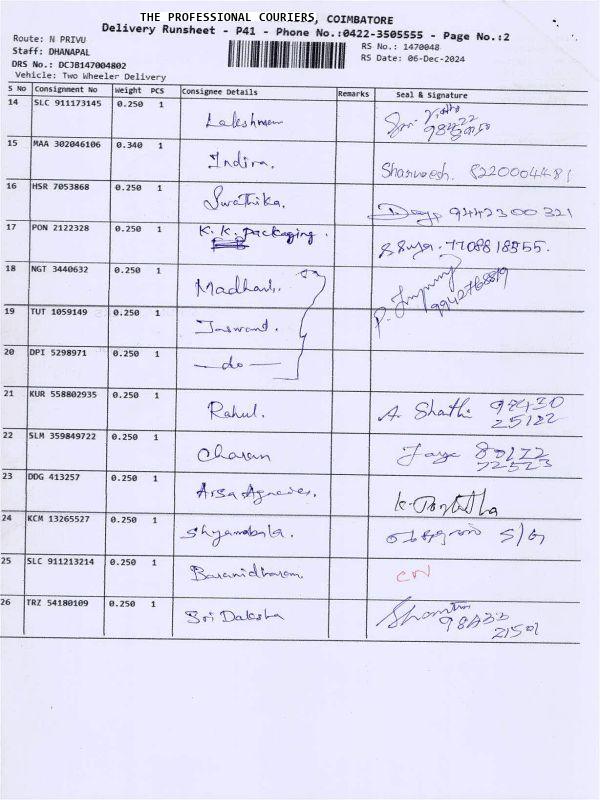 THE PROFESSIONAL COURIERS, COIMBATORE
Delivery Runsheet - P41 - Phone No.:0422-3505555 - Page No.:2
Route: N PRIVU
RS No.: 1470048
Staff: DHANAPAL
RS Date: 06-Dec-2024
DRS No.: DCJB147004802
Vehicle: Two Wheeler Delivery
S No Consignment No Weight PCS Consignee Details Remarks Seal & Signature
14 SLC 911173145 0.250 1 Lakshman
15 MAA 302046106 0.340 1 Indira. Sharveesh. 8220004481
16 HSR 7053868 0.250 1 Swathika. 9442300321
17 PON 2122328 0.250 1 K.K. packaging. 7708818555.
18 NGT 3440632 0.250 1 9942768819
19 TUT 1059149 0.250 1 Jaswant.
20 DPI 5298971 0.250 1 —do—
21 KUR 558802935 0.250 1 Rahul. A. Shathi 94430
25122
22 SLM 359849722 0.250 1 Charan Jaya
72523
23 DDG 413257 0.250 1 Arsa Agencies.
24 KCM 13265527 0.250 1 Shyamabala. S/G
25 SLC 911213214 0.250 1 Baranidharan. CN
26 TRZ 54180109 0.250 1 Sri Daksha
21501